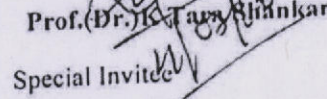 Prof.(Dr.)K Tara Shankar
Special Invitee